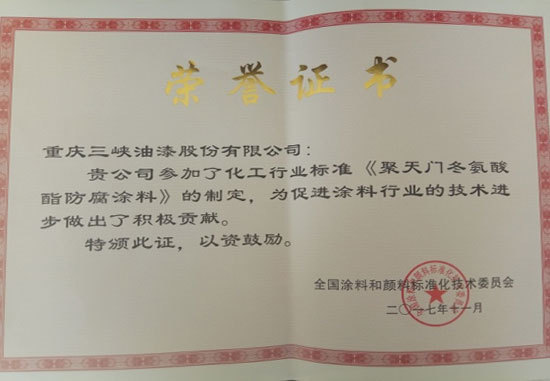 荣誉证书
重庆三峡油漆股份有限公司：
贵公司参加了化工行业标准《聚天门冬氨酸
酯防腐涂料》的制定，为促进涂料行业的技术进
步做出了积极贡献。
特颁此证，以资鼓励。
全国涂料和颜料标准化技术委员会
二〇一七年十一月